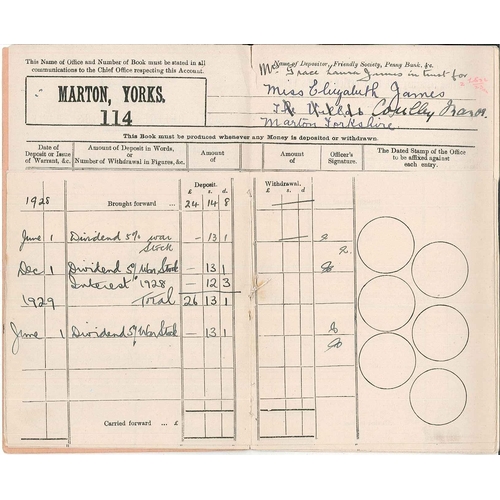 This Name of Office and Number of Book must be stated in all
communications to the Chief Office respecting this Account.
MARTON, YORKS.
114
Name of Depositor, Friendly Society, Penny Bank, &c.
Mrs Grace Laura James in trust for
Miss Elizabeth James
Marton Yorkshire.
This Book must be produced whenever any Money is deposited or withdrawn.
Date of
Deposit or Issue
of Warrant, &c.
Amount of Deposit in Words,
or
Number of Withdrawal in Figures, &c.
Amount
of
Amount
of
Officer's
Signature.
The Dated Stamp of the Office
to be affixed against
each entry.
Deposit.
£ s. d.
Withdrawal.
1928 Brought forward ... 24 14 8
June 1 Dividend 5% War Stock — 13 1
Dec 1 Dividend 5% War Stock — 13 1
Interest 1928 — 12 3
1929 Total 26 13 1
June 1 Dividend 5% War Stock — 13 1
Carried forward ... £